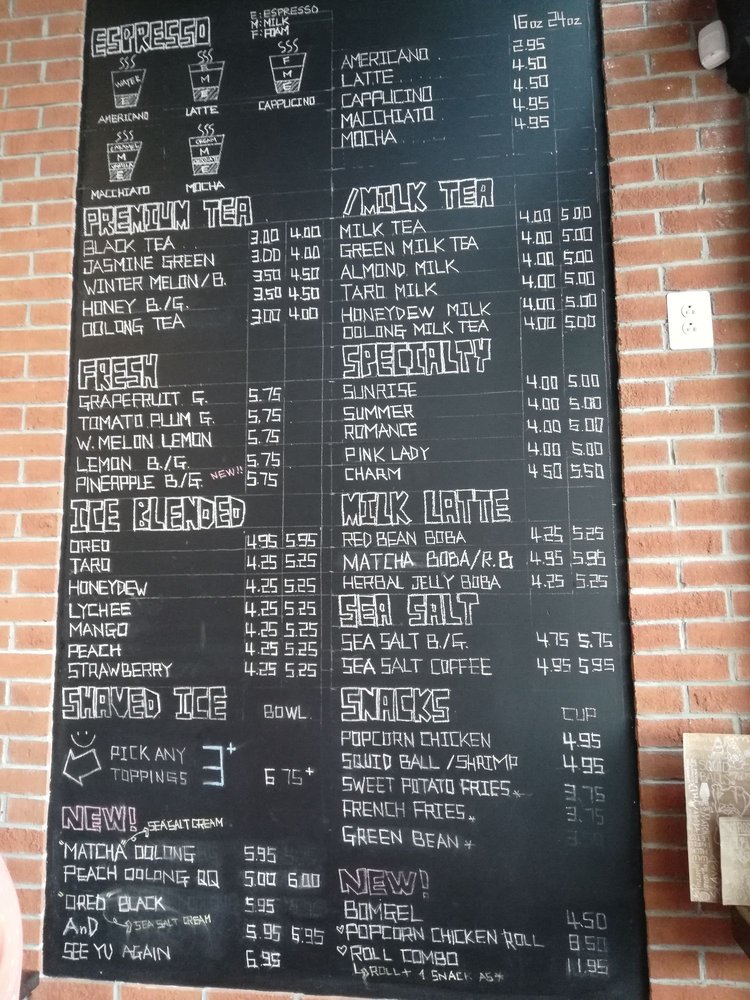 ESPRESSO
E: ESPRESSO
M: MILK
F: FOAM
WATER
E
AMERICANO
F
M
E
LATTE
F
M
E
CAPPUCINO
CARAMEL
M
VANILLA
E
MACCHIATO
CREAM
M
CHOCOLATE
E
MOCHA
16oz 24oz
AMERICANO 2.95
LATTE 4.50
CAPPUCINO 4.50
MACCHIATO 4.95
MOCHA 4.95
PREMIUM TEA
BLACK TEA 3.00 4.00
JASMINE GREEN 3.00 4.00
WINTER MELON/B. 3.50 4.50
HONEY B./G. 3.50 4.50
OOLONG TEA 3.00 4.00
/MILK TEA
MILK TEA 4.00 5.00
GREEN MILK TEA 4.00 5.00
ALMOND MILK 4.00 5.00
TARO MILK 4.00 5.00
HONEYDEW MILK 4.00 5.00
OOLONG MILK TEA 4.00 5.00
FRESH
GRAPEFRUIT G. 5.75
TOMATO PLUM G. 5.75
W. MELON LEMON 5.75
LIMON B./G. 5.75
PINEAPPLE B/G. NEW!! 5.75
SPECIALTY
SUNRISE 4.00 5.00
SUMMER 4.00 5.00
ROMANCE 4.00 5.00
PINK LADY 4.00 5.00
CHARM 4.50 5.50
ICE BLENDED
OREO 4.95 5.95
TARO 4.25 5.25
HONEYDEW 4.25 5.25
LYCHEE 4.25 5.25
MANGO 4.25 5.25
PEACH 4.25 5.25
STRAWBERRY 4.25 5.25
MILK LATTE
RED BEAN BOBA 4.25 5.25
MATCHA BOBA/R.B 4.95 5.95
HERBAL JELLY BOBA 4.25 5.25
SEA SALT
SEA SALT B./G. 4.75 5.75
SEA SALT COFFEE 4.95 5.95
SHAVED ICE BOWL.
PICK ANY 3+
TOPPINGS 6.75+
SNACKS CUP
POPCORN CHICKEN 4.95
SQUID BALL/SHRIMP 4.95
SWEET POTATO FRIES* 3.75
FRENCH FRIES* 3.75
GREEN BEAN*
NEW!
SEA SALT CREAM
"MATCHA" OOLONG 5.95
PEACH OOLONG QQ 5.00 6.00
"OREO" BLACK 5.95
SEA SALT CREAM
AnD 5.95 6.95
SEE YU AGAIN 6.95
NEW!
BOMGEL 4.50
♥POPCORN CHICKEN ROLL 8.50
♥ROLL COMBO 11.95
ROLL + 1 SNACK AS*